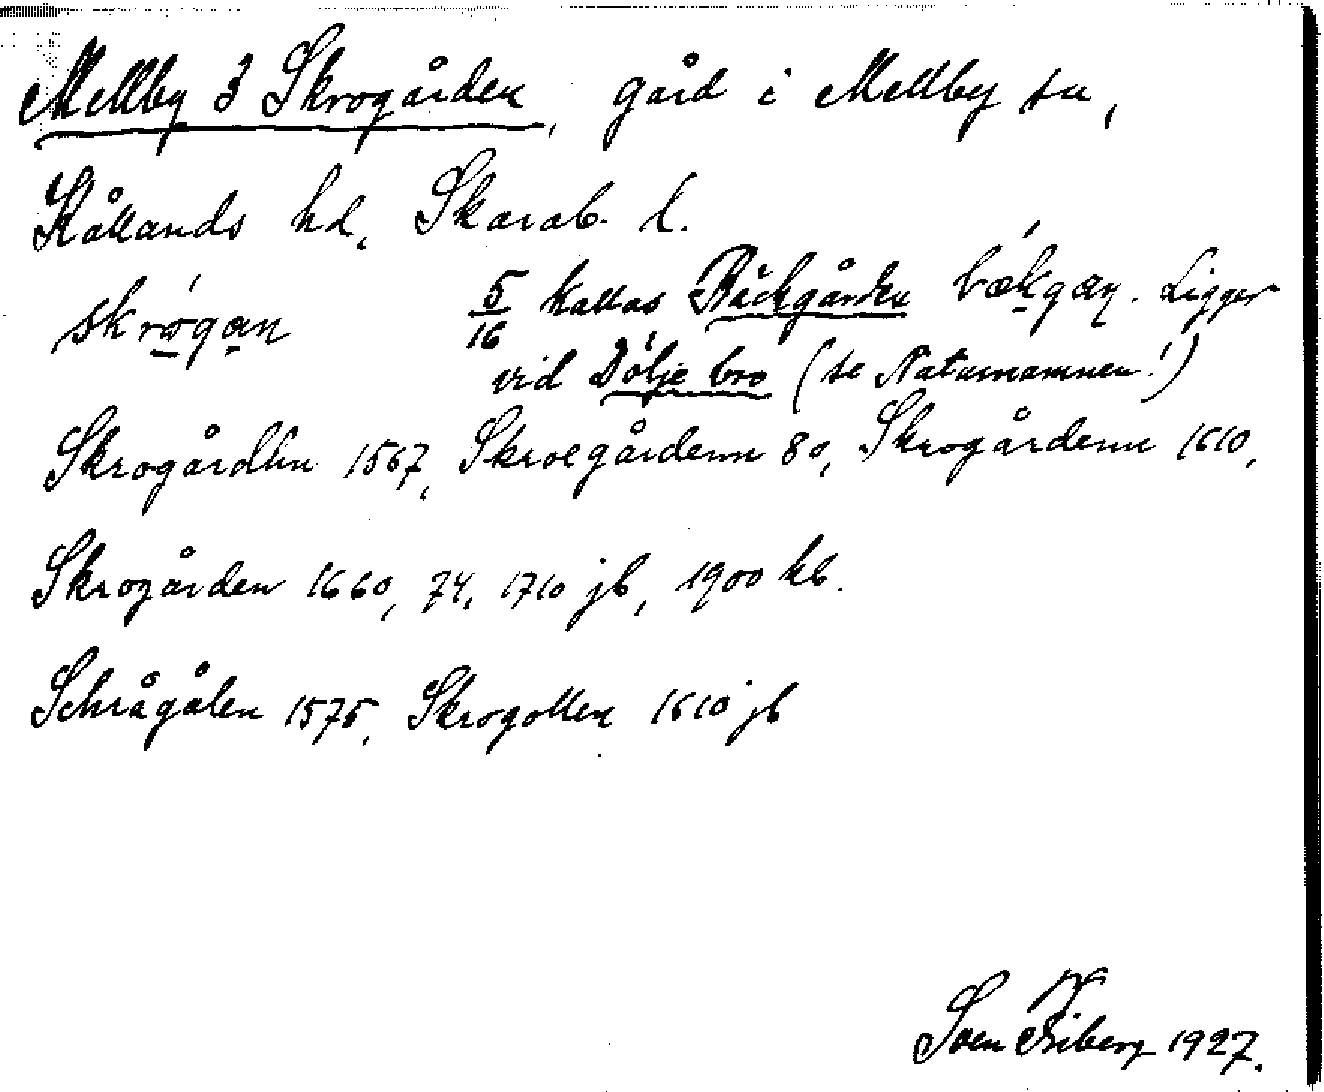 Mellby 3 Skrogården, gård i Mellby sn,
Kållands hd, Skarab. l.
skrógan 5/16 kallas Bäckgården bækgan. Ligger
vid Dölje bro (se Naturnamnen!)
Skrogårdhn 1567, Skroegårdenn 80, Skrogårdenn 1610,
Skrogården 1660, 74, 1710 jb, 1900 kb.
Schrågålen 1575, Skrogollen 1610 jb
Sven Friberg 1927.